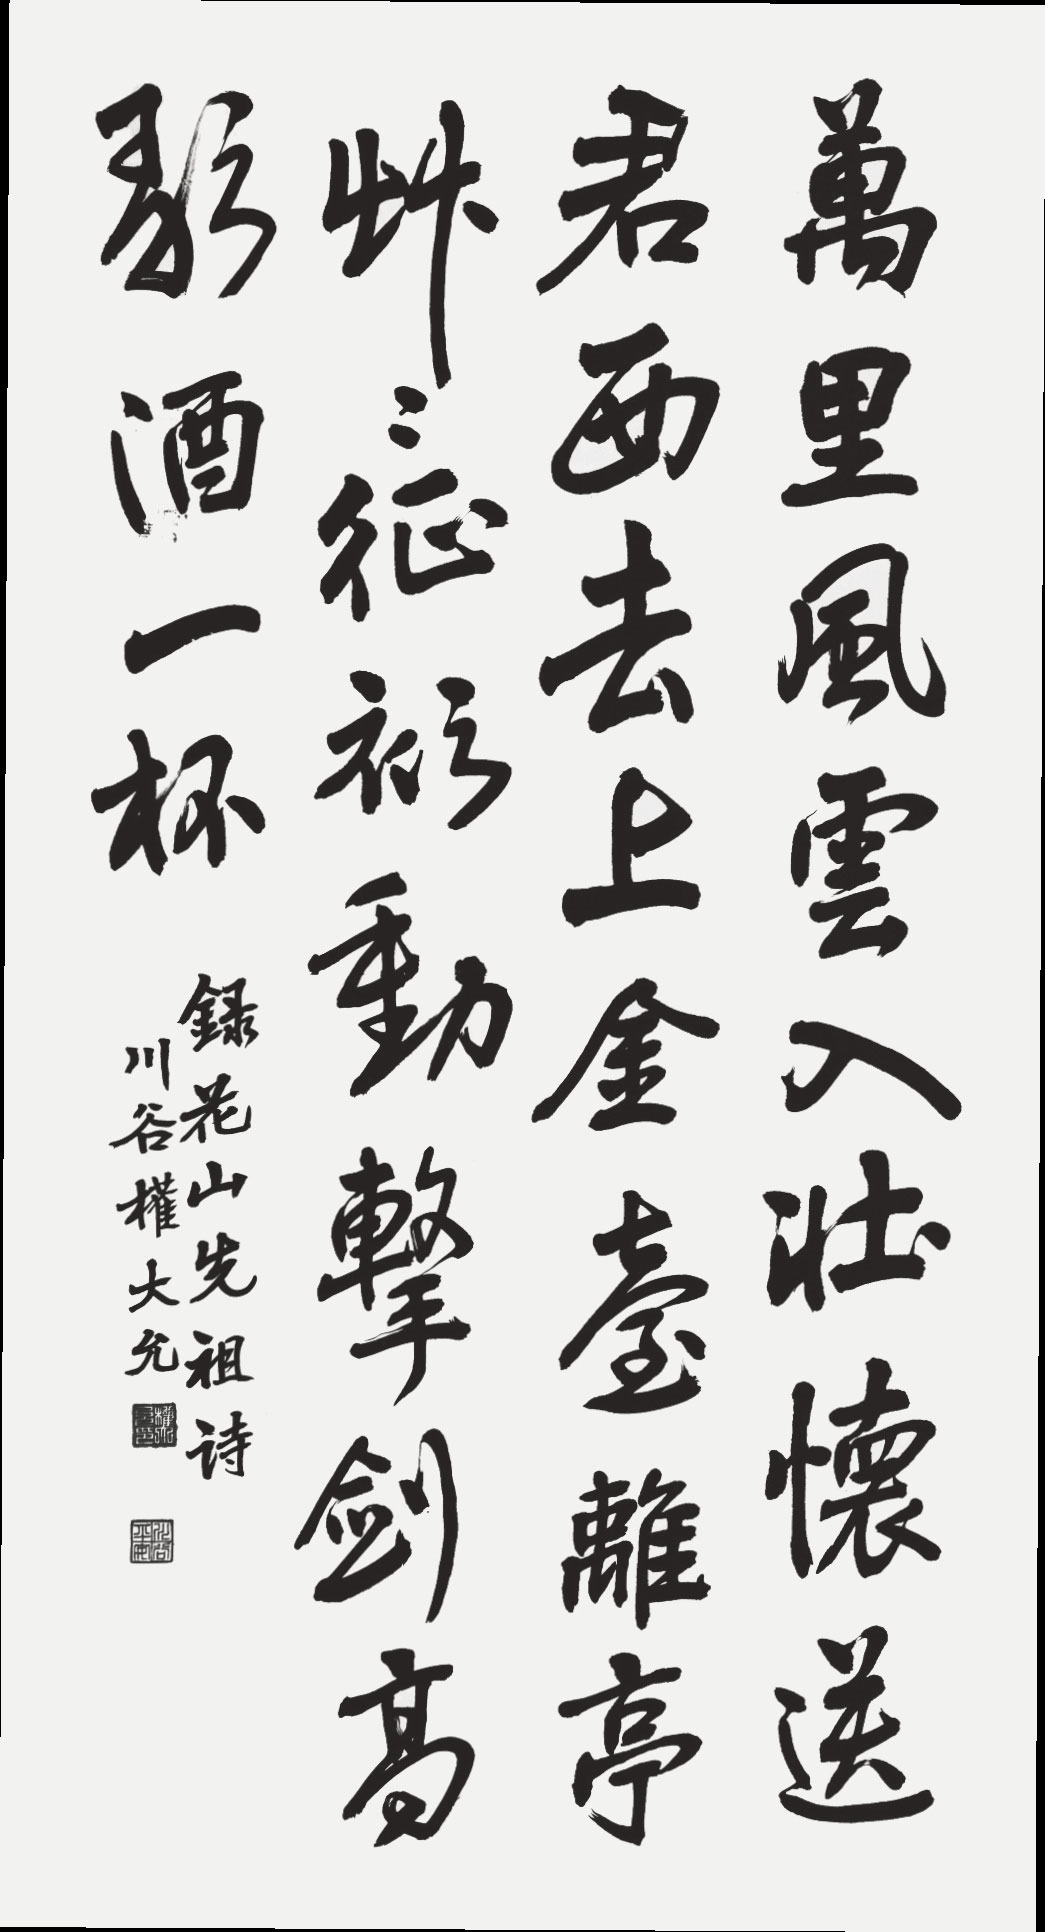 萬里風雲入壯懷送
君西去上金臺離亭
艸〻征衫動擊劍高
歌酒一杯
録花山先祖詩
川谷權大允